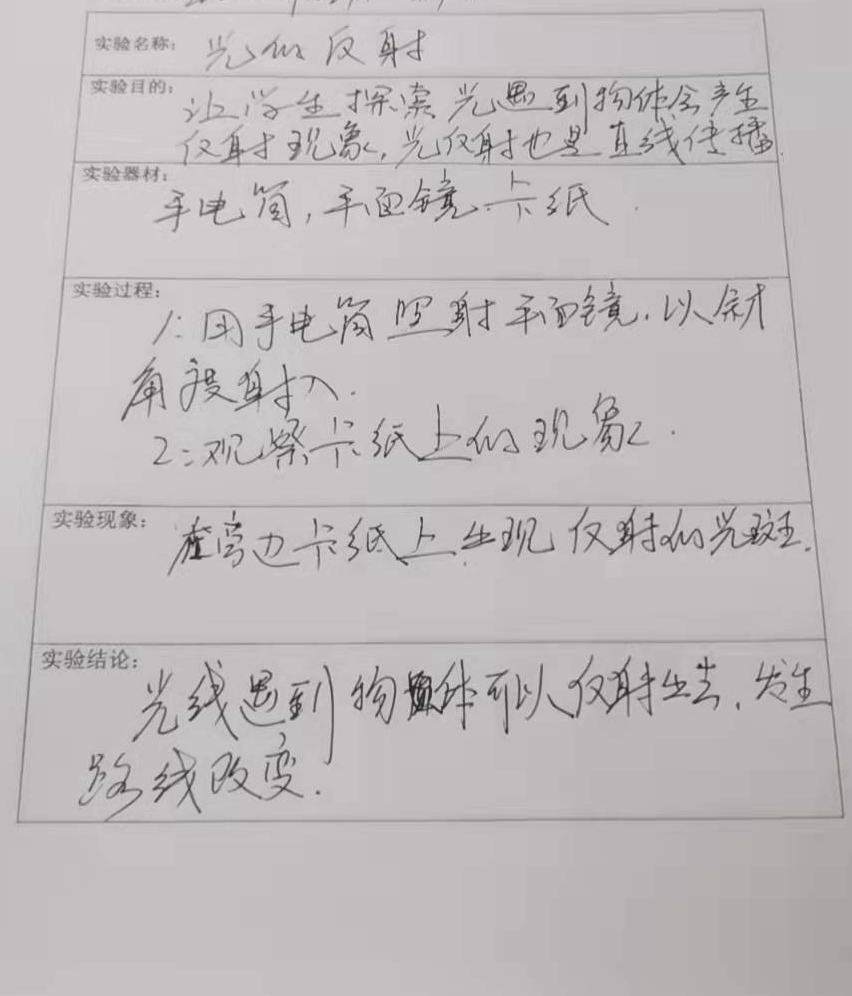 实验名称：光的反射
实验目的：让学生探索光遇到物体会产生
反射现象，光反射也是直线传播.
实验器材：
手电筒，平面镜.卡纸.
实验过程：
1：用手电筒照射平面镜.以斜
角度射入.
2：观察卡纸上的现象.
实验现象：在旁边卡纸上出现反射的光斑.
实验结论：
光线遇到物体可以反射出去.发生
路线改变.